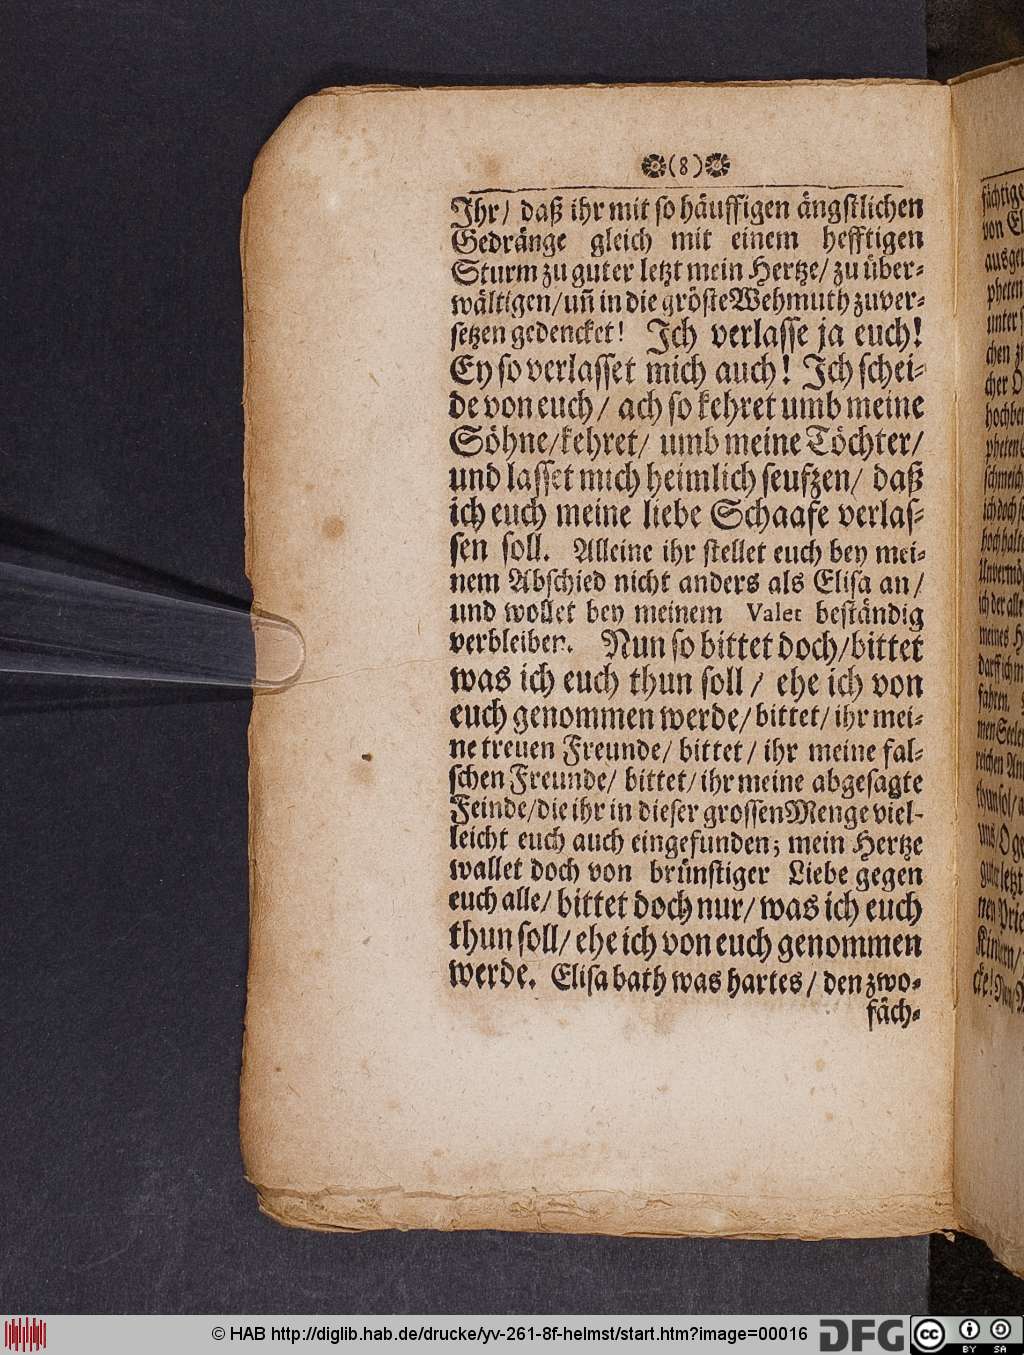 (8)
Ihr/ daß ihr mit so häuffigen ängstlichen
Gedränge gleich mit einem hefftigen
Sturm zu guter letzt mein Hertze/ zu über-
wältigen/ uñ in die gröste Wehmuth zuver-
setzen gedencket! Ich verlasse ja euch!
Ey so verlasset mich auch! Ich schei-
de von euch/ ach so kehret umb meine
Söhne/kehret/ umb meine Töchter/
und lasset mich heimlich seufzen/ daß
ich euch meine liebe Schaafe verlas-
sen soll. Alleine ihr stellet euch bey mei-
nem Abschied nicht anders als Elisa an/
und wollet bey meinem Valet beständig
verbleiben. Nun so bittet doch/bittet
was ich euch thun soll/ ehe ich von
euch genommen werde/ bittet/ ihr mei-
ne treuen Freunde/ bittet/ ihr meine fal-
schen Freunde/ bittet/ ihr meine abgesagte
Feinde/die ihr in dieser grossen Menge viel-
leicht euch auch eingefunden; mein Hertze
wallet doch von brünstiger Liebe gegen
euch alle/ bittet doch nur/ was ich euch
thun soll/ ehe ich von euch genommen
werde. Elisa bath was hartes/ den zwo-
fäch-
© HAB http://diglib.hab.de/drucke/yv-261-8f-helmst/start.htm?image=00016 DFG CC BY SA